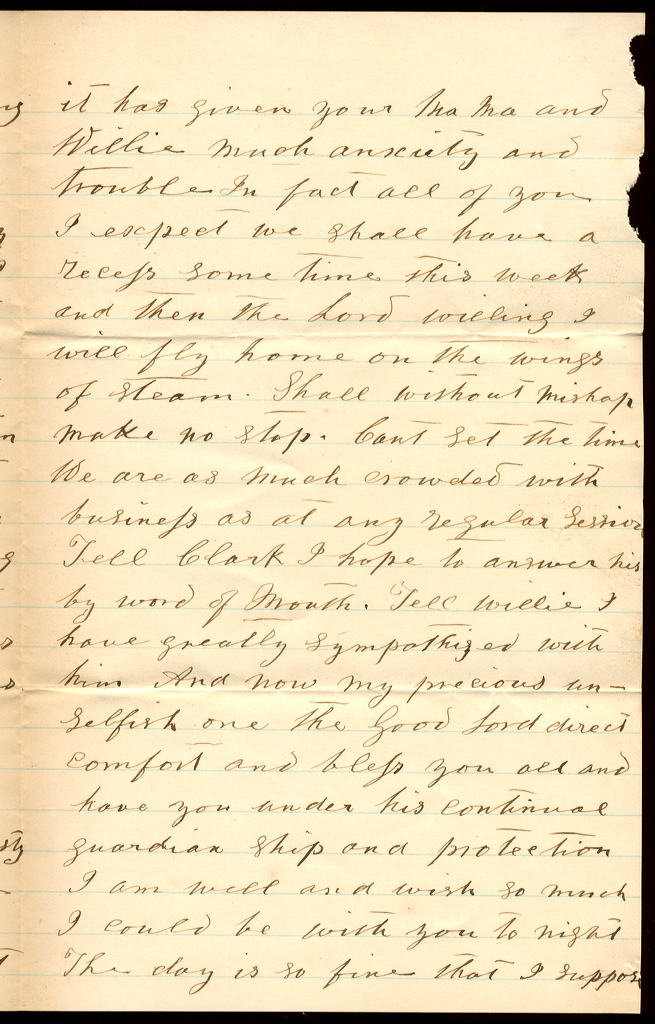 it has given your Ma Ma and
Willie much anxiety and
trouble In fact all of you
I expect we shall have a
recess some time this week
and then the Lord willing I
will fly home on the wings
of steam. Shall without mishap
make no stop. Cant set the time
We are as much crowded with
business as at any regular Session
Tell Clark I hope to answer his
by word of Mouth. Tell willie I
have greatly sympathized with
him And now my precious un-
selfish one the Good Lord direct
comfort and bless you all and
have you under his continual
guardian ship and protection
I am well and wish so much
I could be with you to night
The day is so fine that I suppose